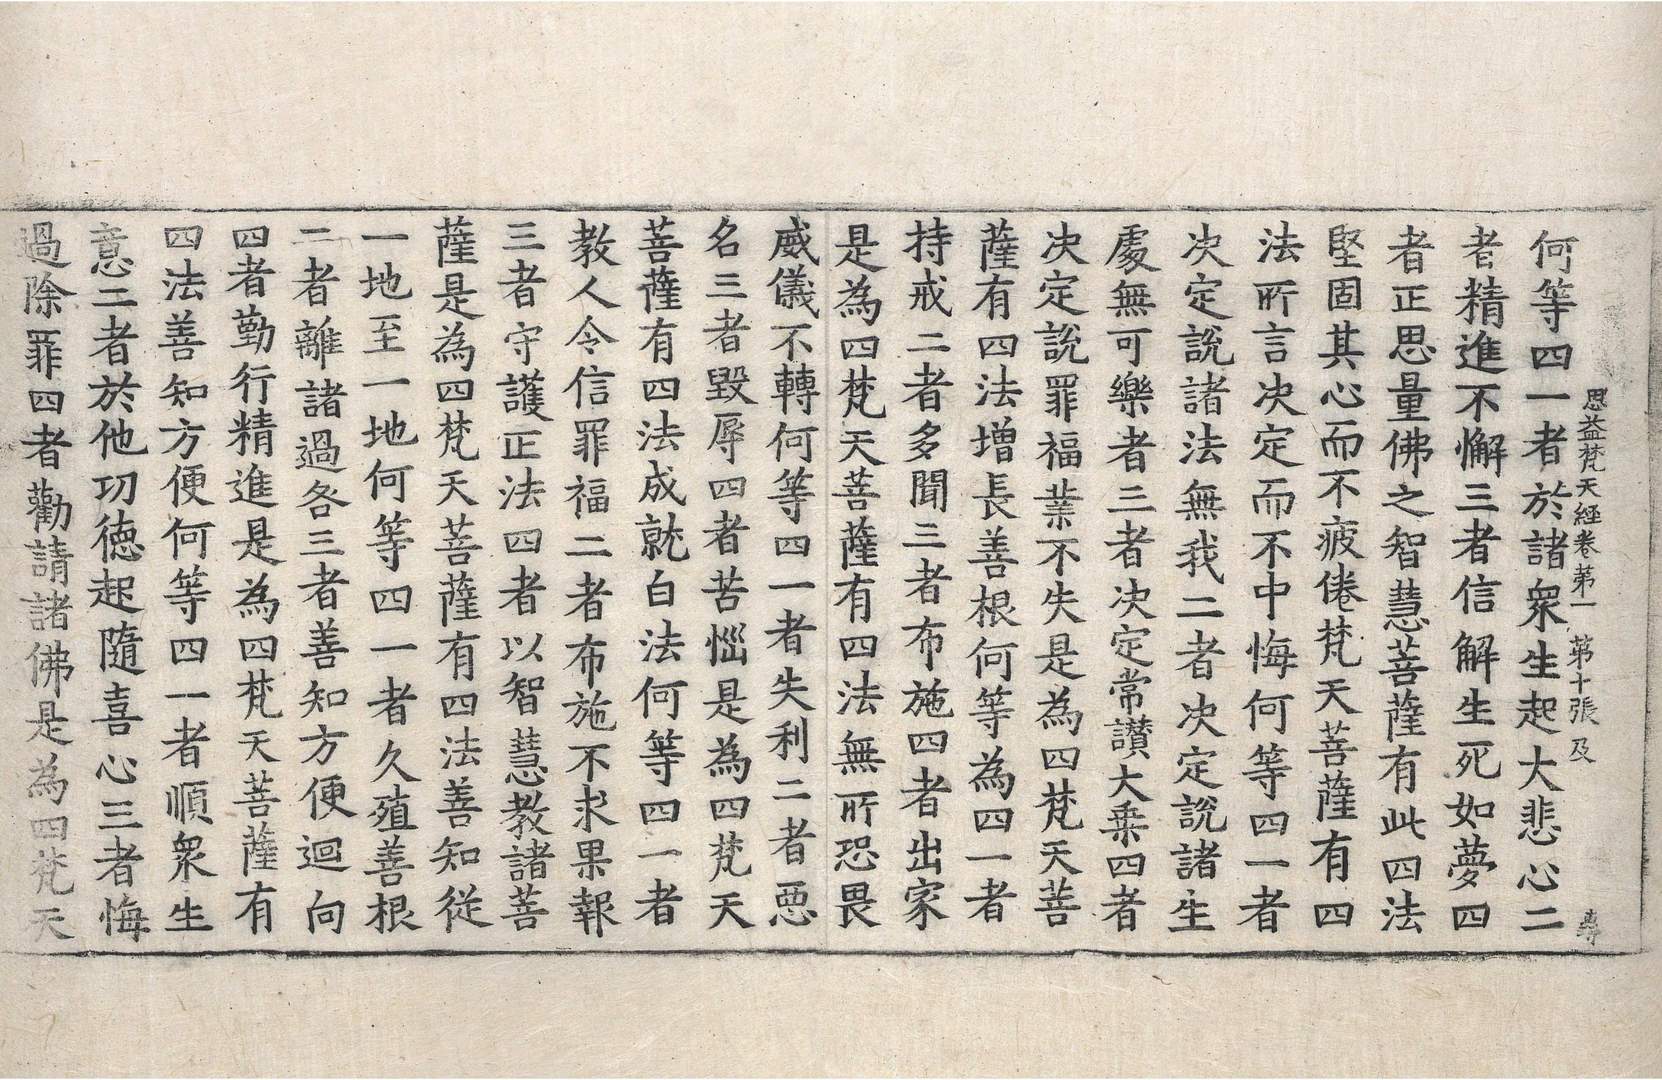 思益梵天經卷第一 第十張 及 専
何等四一者於諸衆生起大悲心二
者精進不懈三者信解生死如夢四
者正思量佛之智慧菩薩有此四法
堅固其心而不疲倦梵天菩薩有四
法所言决定而不中悔何等四一者
决定說諸法無我二者决定說諸生
處無可樂者三者决定常讃大乗四者
决定說罪福業不失是為四梵天菩
薩有四法增長善根何等為四一者
持戒二者多聞三者布施四者出家
是為四梵天菩薩有四法無所恐畏
威儀不轉何等四一者失利二者惡
名三者毀辱四者苦惱是為四梵天
菩薩有四法成就白法何等四一者
教人令信罪福二者布施不求果報
三者守護正法四者以智慧教諸菩
薩是為四梵天菩薩有四法善知從
一地至一地何等四一者久殖善根
二者離諸過各三者善知方便迴向
四者勤行精進是為四梵天菩薩有
四法善知方便何等四一者順衆生
意二者於他功徳起隨喜心三者悔
過除罪四者勸請諸佛是為四梵天